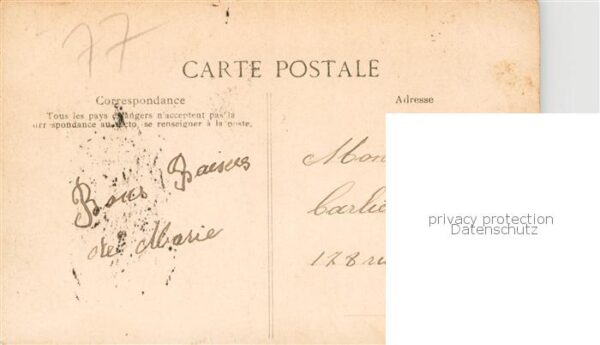 77
CARTE POSTALE
Correspondance
Tous les pays étrangers n'acceptent pas la
correspondance au recto, se renseigner à la poste.
Bons Baisers
de Marie
Adresse
Mon
Carlie
128 ru
privacy protection
Datenschutz